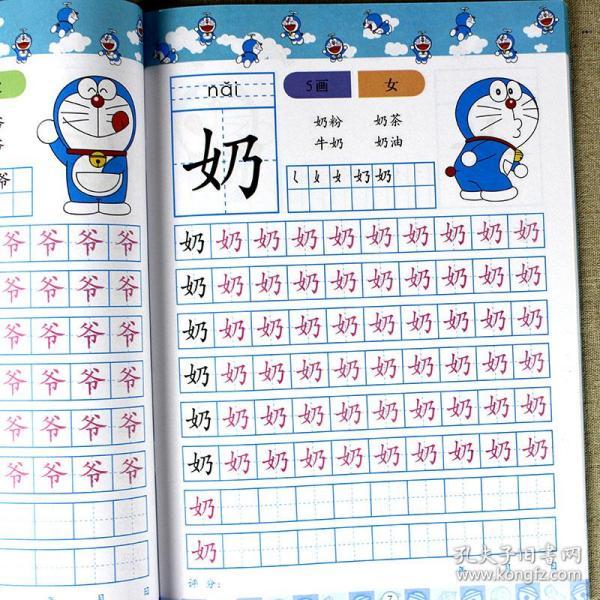 爷 爷 爷 爷
爷 爷 爷 爷
爷 爷 爷 爷
爷 爷 爷 爷
爷 爷 爷 爷
爷 爷 爷 爷
月 日
nǎi
奶
5画 女
奶粉 奶茶
牛奶 奶油
奶 奶
奶 奶 奶 奶 奶 奶 奶 奶 奶 奶
奶 奶 奶 奶 奶 奶 奶 奶 奶 奶
奶 奶 奶 奶 奶 奶 奶 奶 奶 奶
奶 奶 奶 奶 奶 奶 奶 奶 奶 奶
奶 奶 奶 奶 奶 奶 奶 奶 奶 奶
奶 奶 奶 奶 奶 奶 奶 奶 奶 奶
奶
奶
评 分:
7
孔夫子旧书网
www.kongfz.com